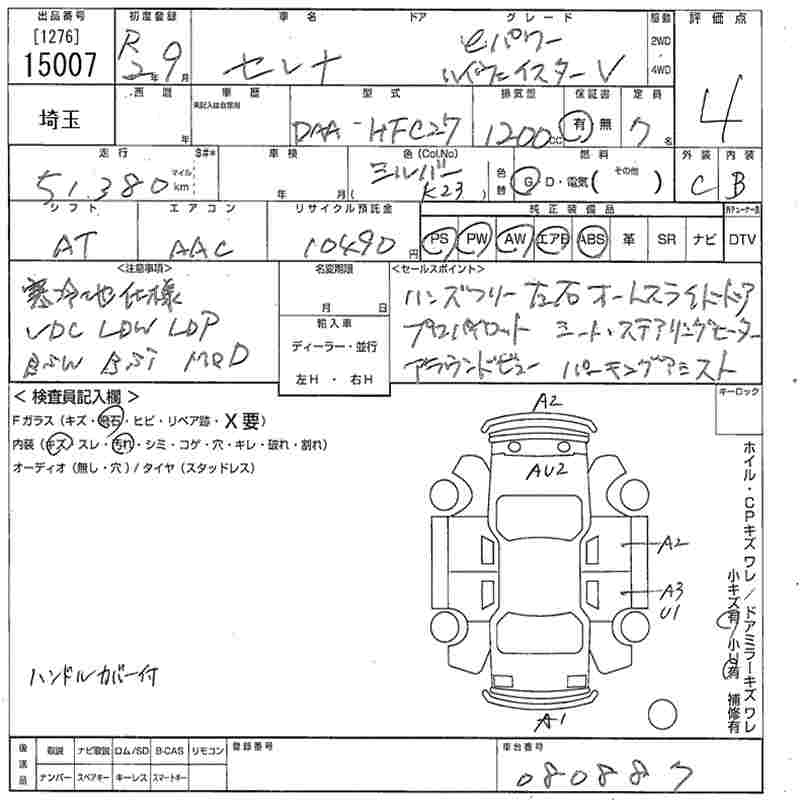 出品番号 初度登録 車名 ドア グレード 駆動 評価点
[1276] R 2年 9月 セレナ eパワー 2WD
15007 ハイウェイスターV ・4WD 4
埼玉 西暦 年 車歴 未記入は自家用 型式 排気量 保証書 定員
DAA-HFC27 1200cc 有 無 7名
走行 S#* 車検 色(Col.No) 燃料 外装 内装
51,380 マイル km 年 月 シルバー (K23) 色替 G・D・電気( その他 ) C B
シフト エアコン リサイクル預託金 純正装備品
AT AAC 10490円 PS PW AW エアB ABS 革 SR ナビ DTV
<注意事項> 名変期限 <セールスポイント>
寒冷地仕様 月 日 ハンズフリー左右オートスライドドア
VDC LDW LDP 輸入車 プロパイロット シート・ステアリングヒーター
BSW BSI MOD ディーラー・並行 アラウンドビュー パーキングアシスト
左H ・ 右H
<検査員記入欄> キーロック
Fガラス(キズ・飛石・ヒビ・リペア跡・X要)
内装(キズ・スレ・汚れ・シミ・コゲ・穴・キレ・破れ・割れ)
オーディオ(無し・穴)/タイヤ(スタッドレス)
A2
AU2
A2
A3
U1
A1
ホイル・CPキズ ワレ/ドアミラーキズ ワレ
小キズ有 小U有 補修有
ハンドルカバー付
後送品 取説 ナビ取説 ロム/SD B-CAS リモコン 登録番号 車台番号
ナンバー スペアキー キーレス スマートキー 080887